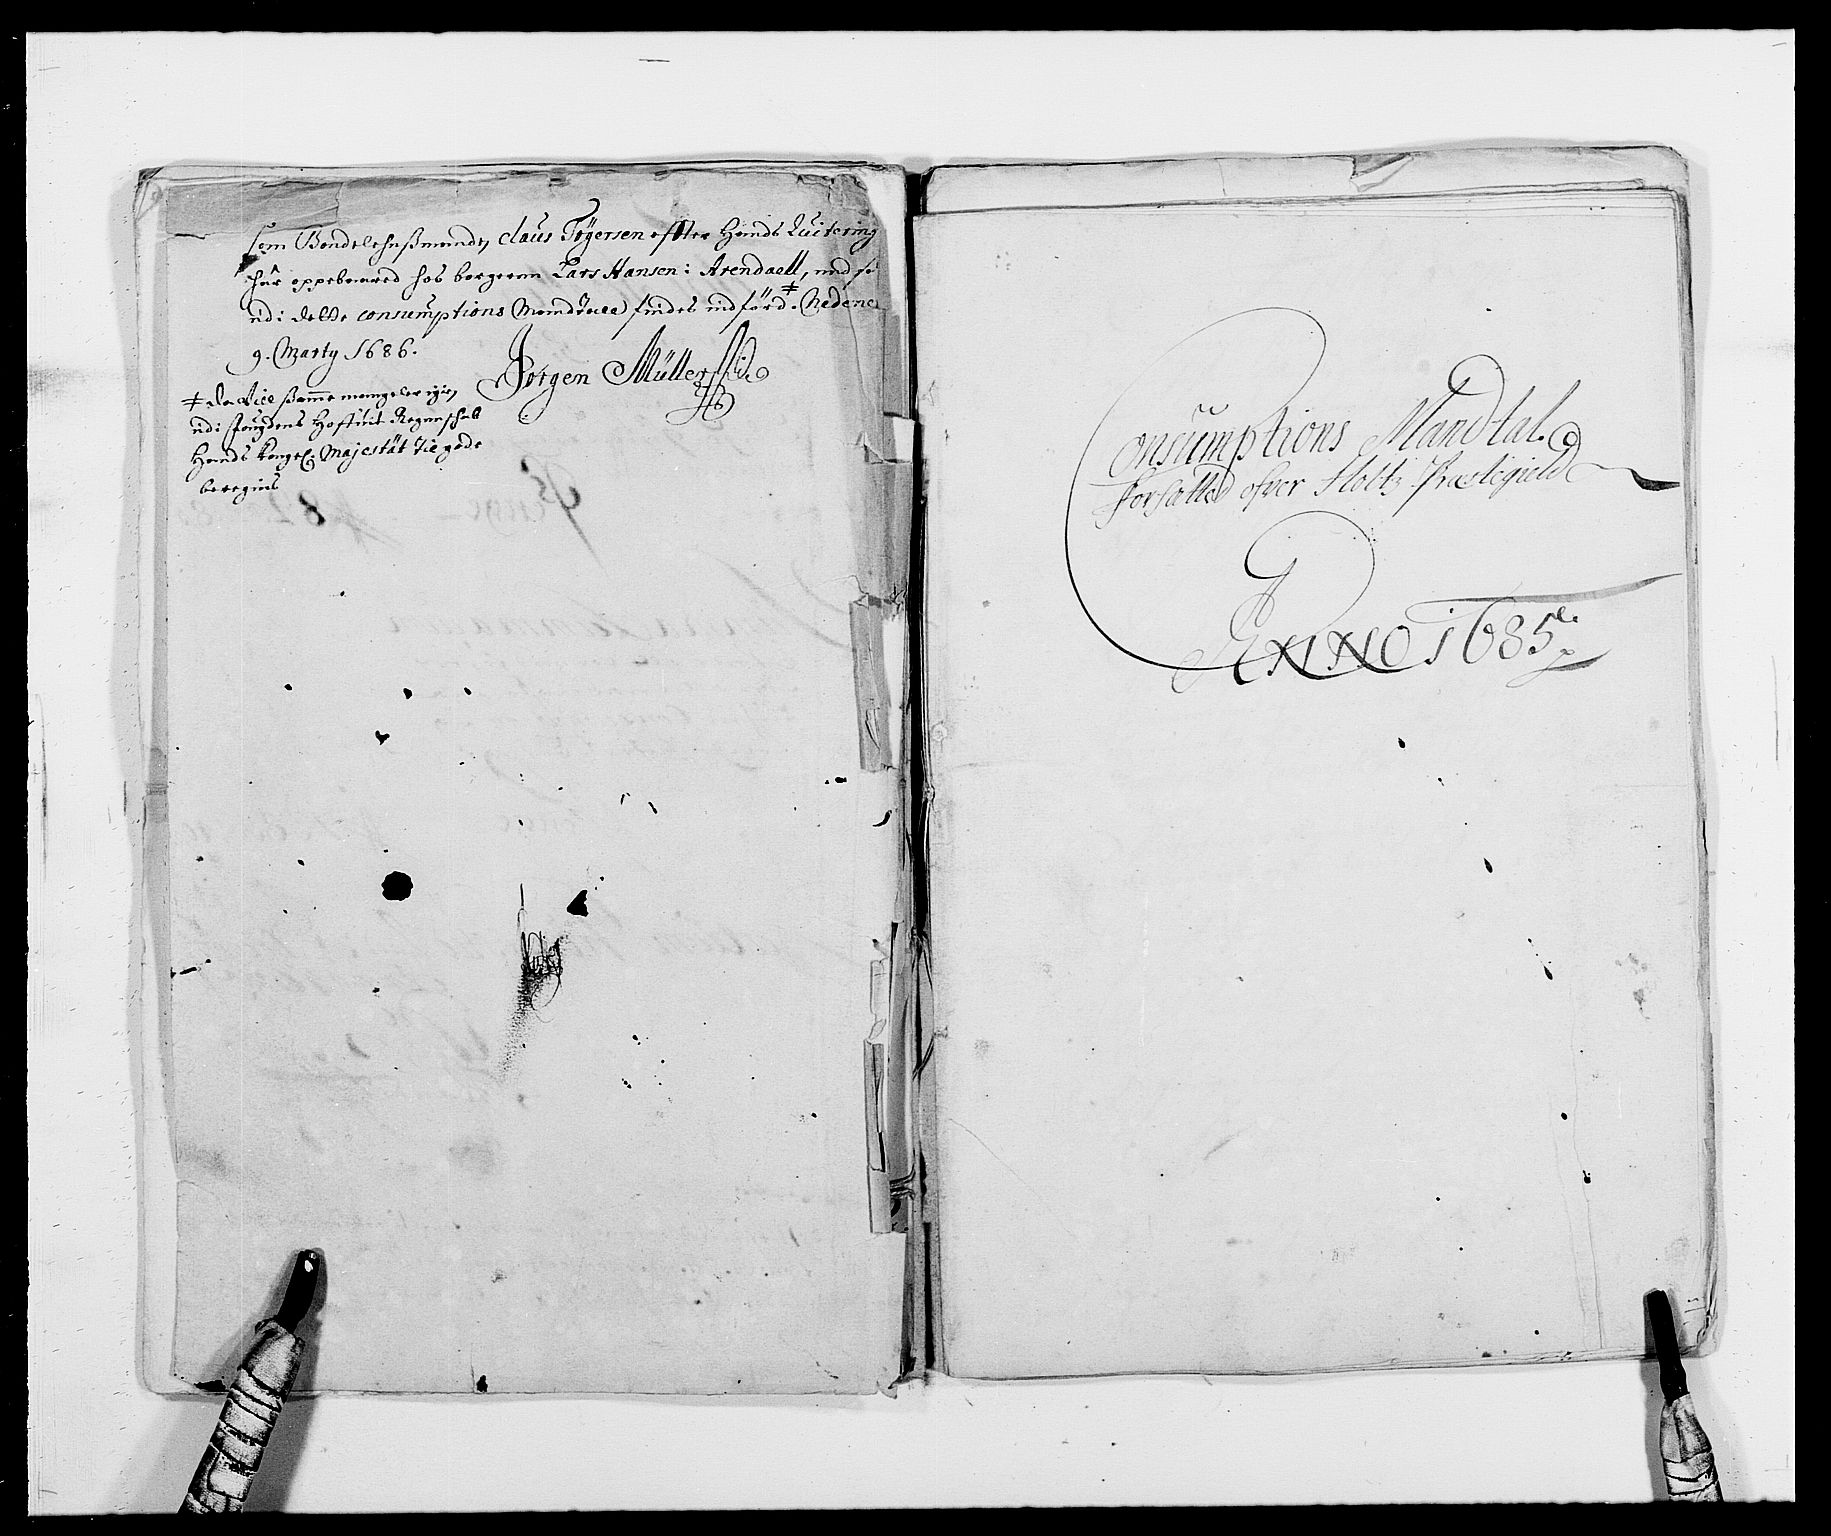 som Bondelehnßmand, Claus Tögersen effter Hands Quitering
hâr oppebaared hos borgeren Lars Hansen i Arendaell, und so
udi dette consumptions Mandtall findes indförd. ⧧ Nedenes
9. Marty 1686.
Jörgen Müller
⧧ da till samme mangler igien
udi fougdens Regenschab
Hands Kongel: Majestät til gode
beregnis
Consumptions Mandtal
Forfatted ofver Holtz Præstegield
ANNO 1685